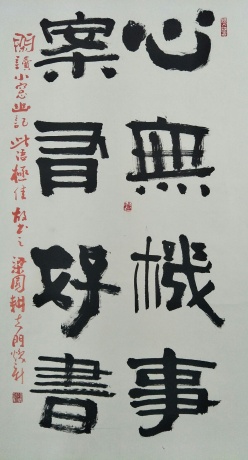 心無機事
案有好書
閒讀小窗幽記此語極佳故書之梁國耕